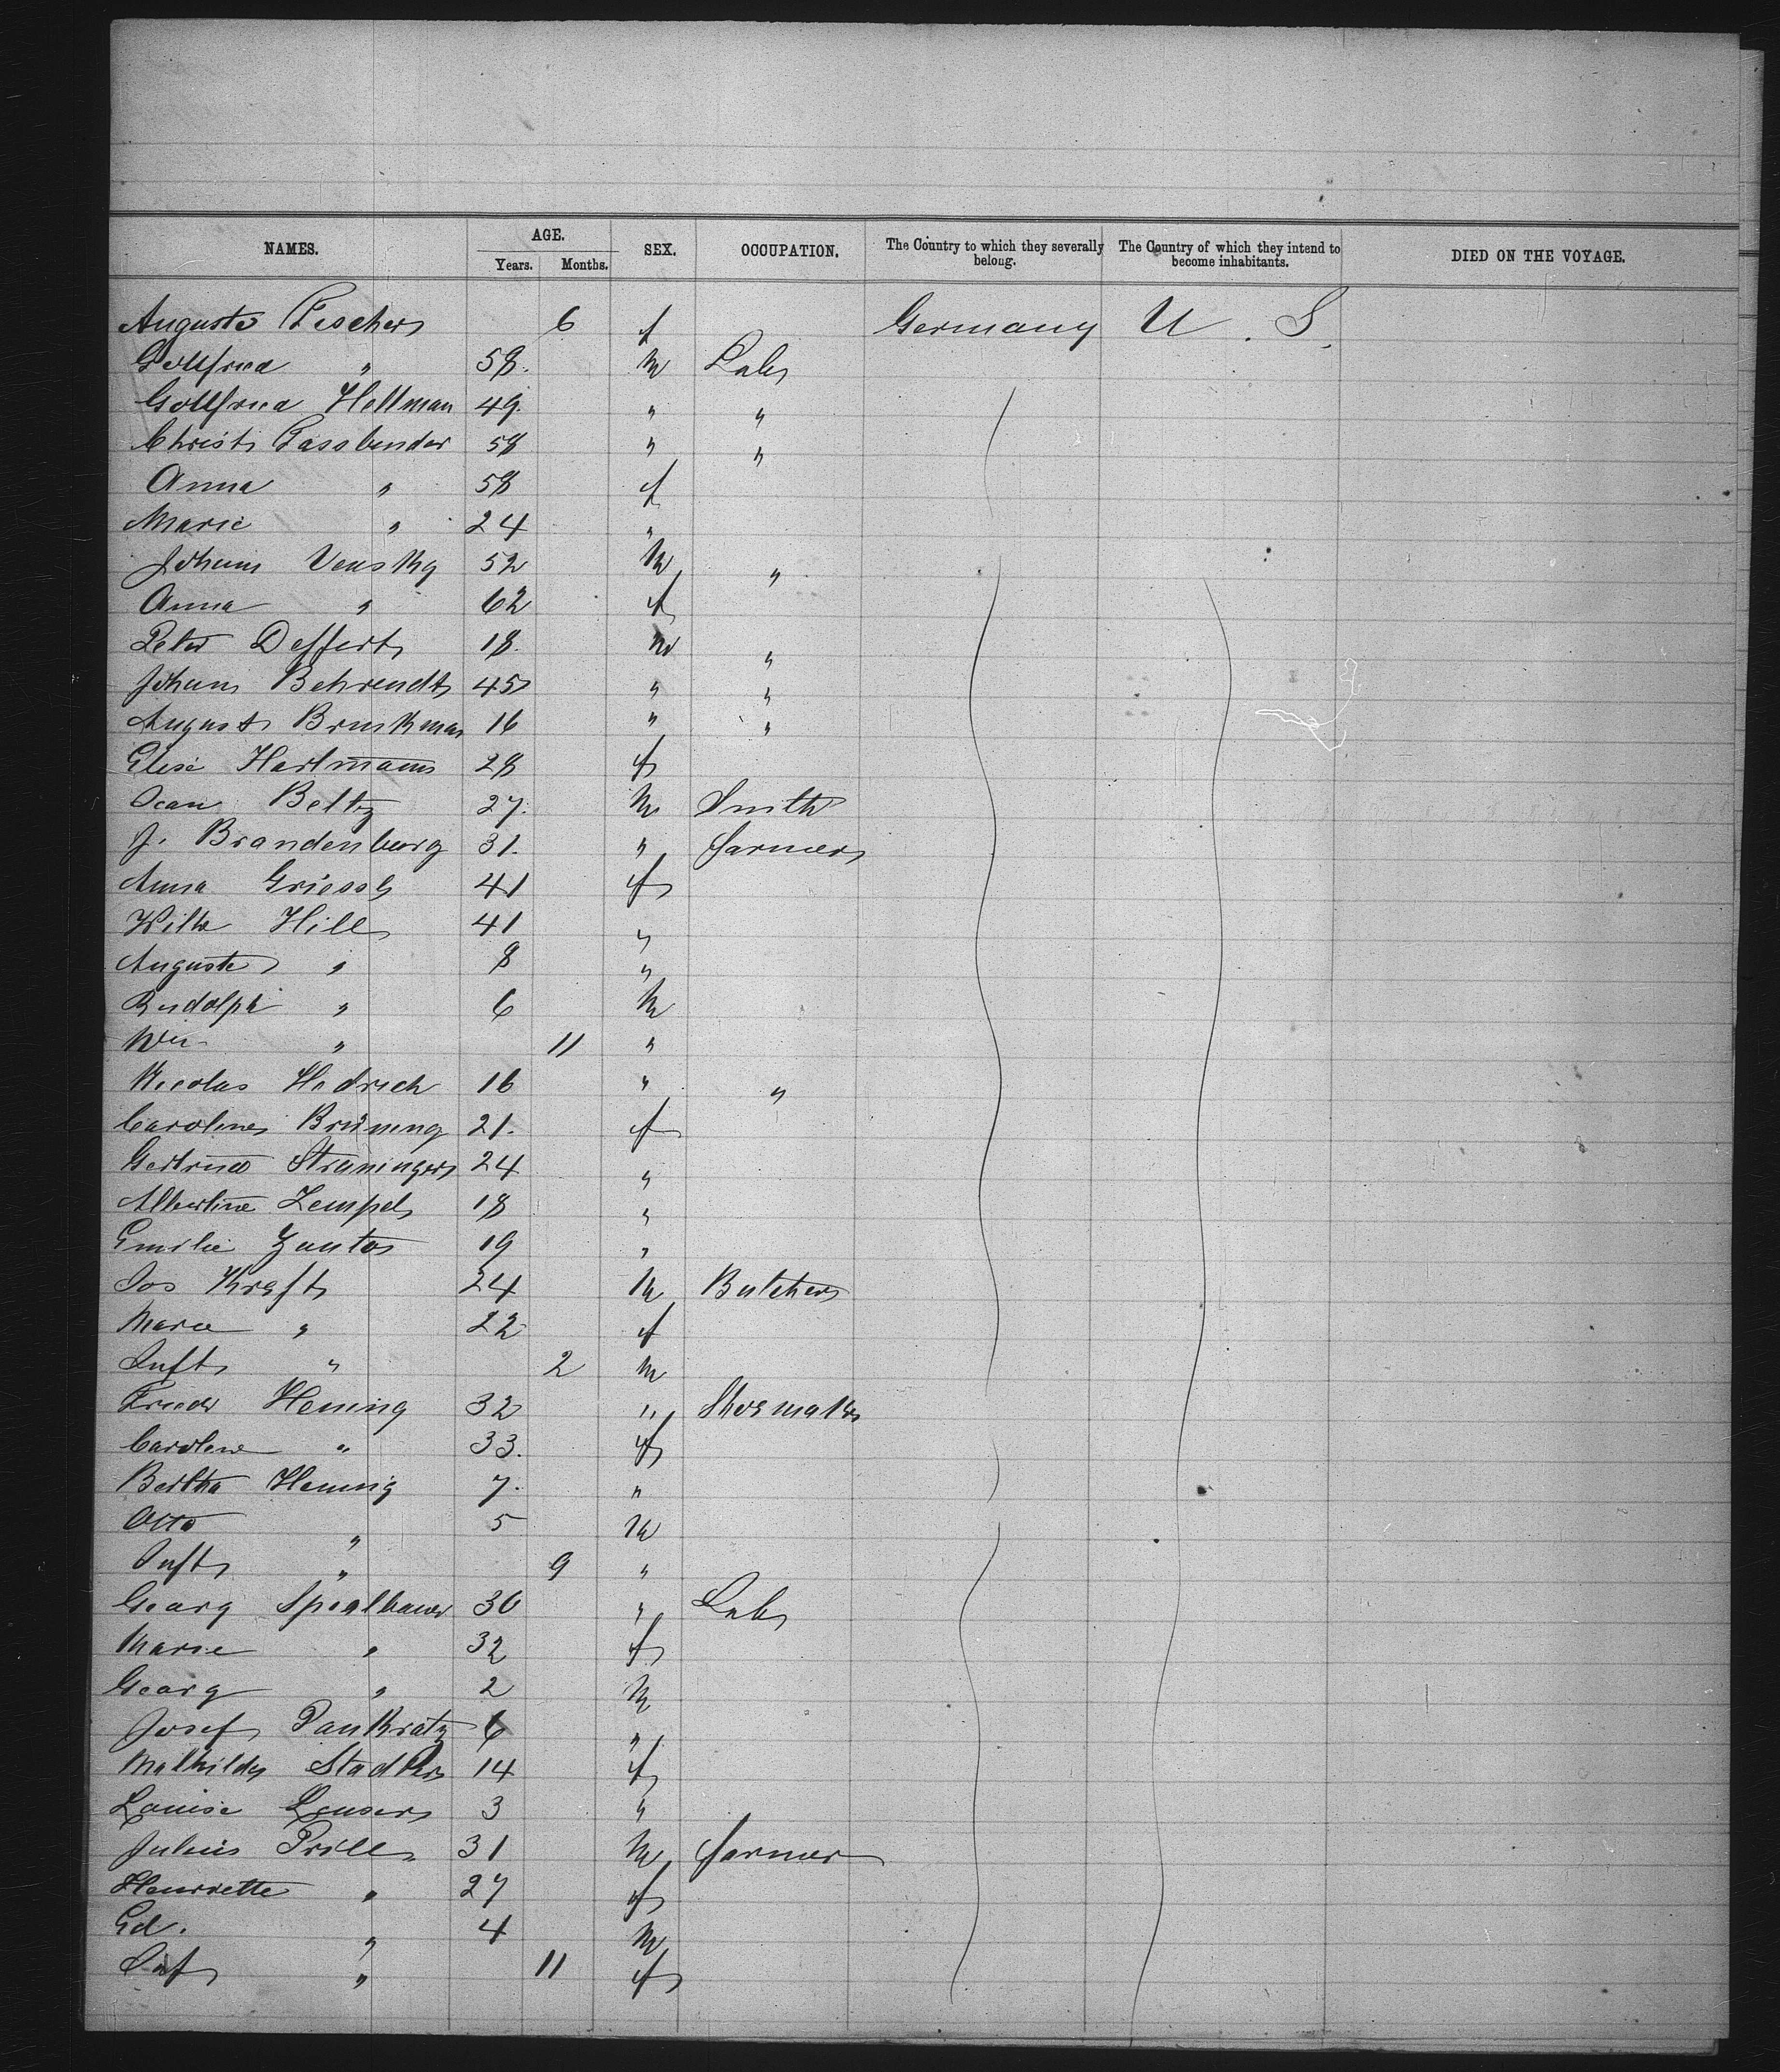 NAMES. AGE. SEX. OCCUPATION. The Country to which they severally belong. The Country of which they intend to become inhabitants. DIED ON THE VOYAGE.
Years. Months.
Auguste Fischer 6 f Germany U. S.
Gottfried " 58. m Lab
Gottfried Hellman 49. " "
Christ Fassbender 58 " "
Anna " 58 f
Marie " 24 "
Johann Vensky 52 m "
Anna " 62 f
Peter Deffert 18. m "
Johann Behrendt 45 " "
August Brinkman 16 " "
Elise Hartmann 28 f
Jean Beltz 27. m Smith
J. Brandenburg 31. " farmer
Anna Griessl 41 f
Wilh Hill 41 "
Auguste " 8 "
Rudolph " 6 m
" 11 "
Nicolas Hedrich 16 " "
Caroline Brüning 21. f
Gertrud Straninger 24 "
Albertine Zempel 18 "
Emilie 19 "
Jos Kraft 24 m Butcher
Marie " 22 f
Inft " 2 m
Friedr Hennig 32 " Shoemaker
Caroline " 33. f
Bertha Hennig 7. "
Otto " 5 m
Inft " 9 "
Georg 30 " Lab
Marie " 32 f
Georg " 2 m
Josef Pankratz 6 "
Mathilde Stadler 14 f
Louise 3 "
Julius Prill 31 m farmer
Henriette " 27 f
Ed. " 4 m
Inf " 11 f